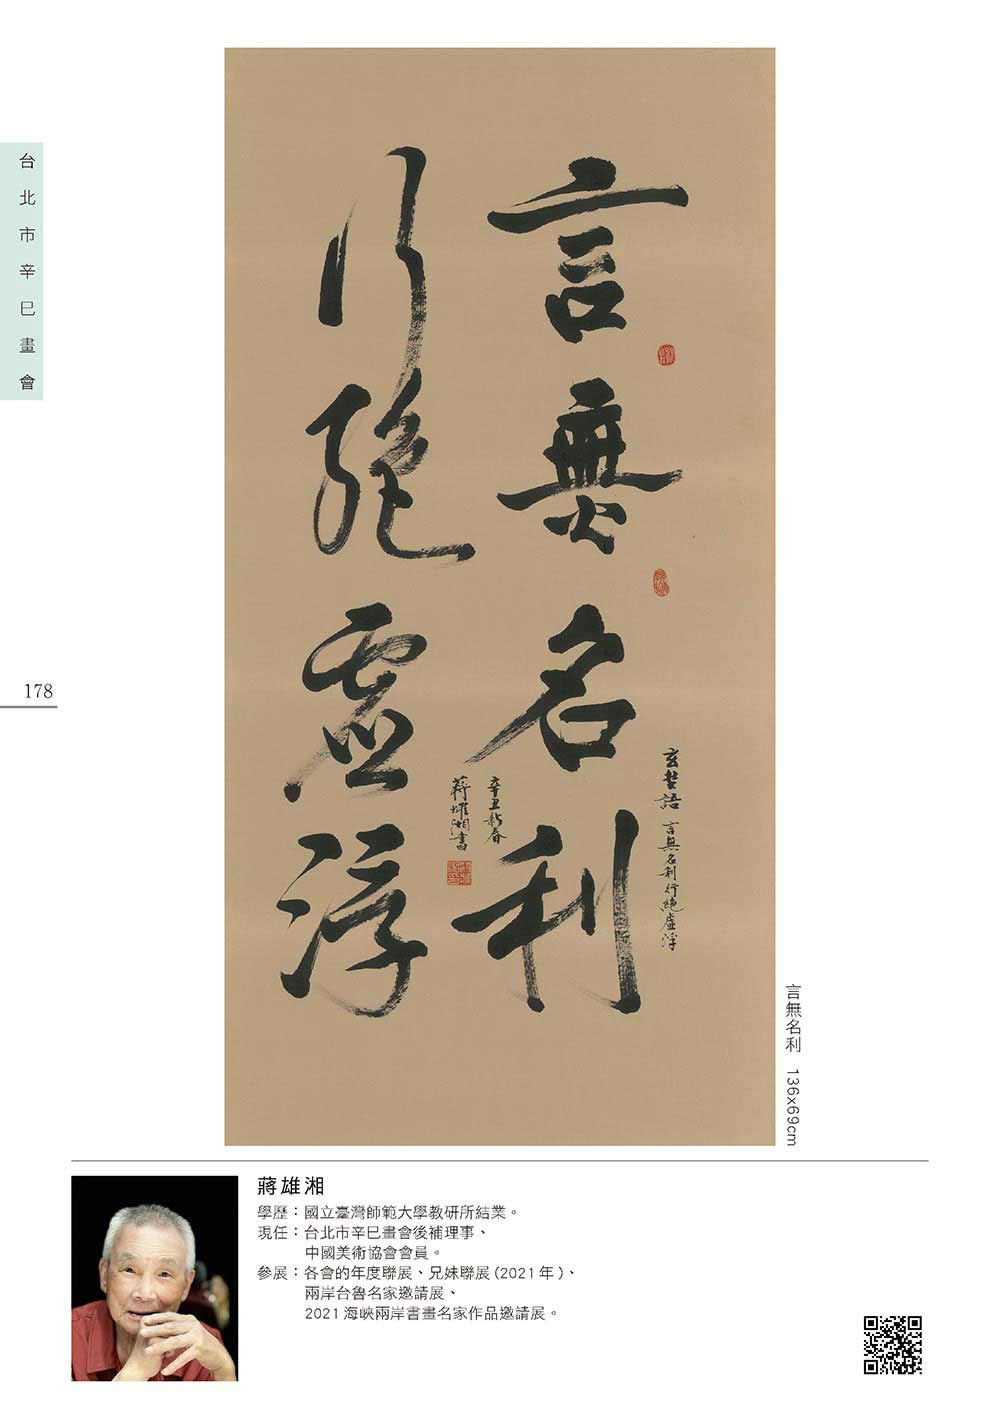 台北市辛巳畫會
178
言無名利
行絕虛浮
玄楚語 言無名利行絕虛浮
辛丑新春
蔣雄湘書
言無名利 136x69cm
蔣雄湘
學歷：國立臺灣師範大學教研所結業。
現任：台北市辛巳畫會後補理事、
中國美術協會會員。
參展：各會的年度聯展、兄妹聯展(2021年)、
兩岸台魯名家邀請展、
2021海峽兩岸書畫名家作品邀請展。